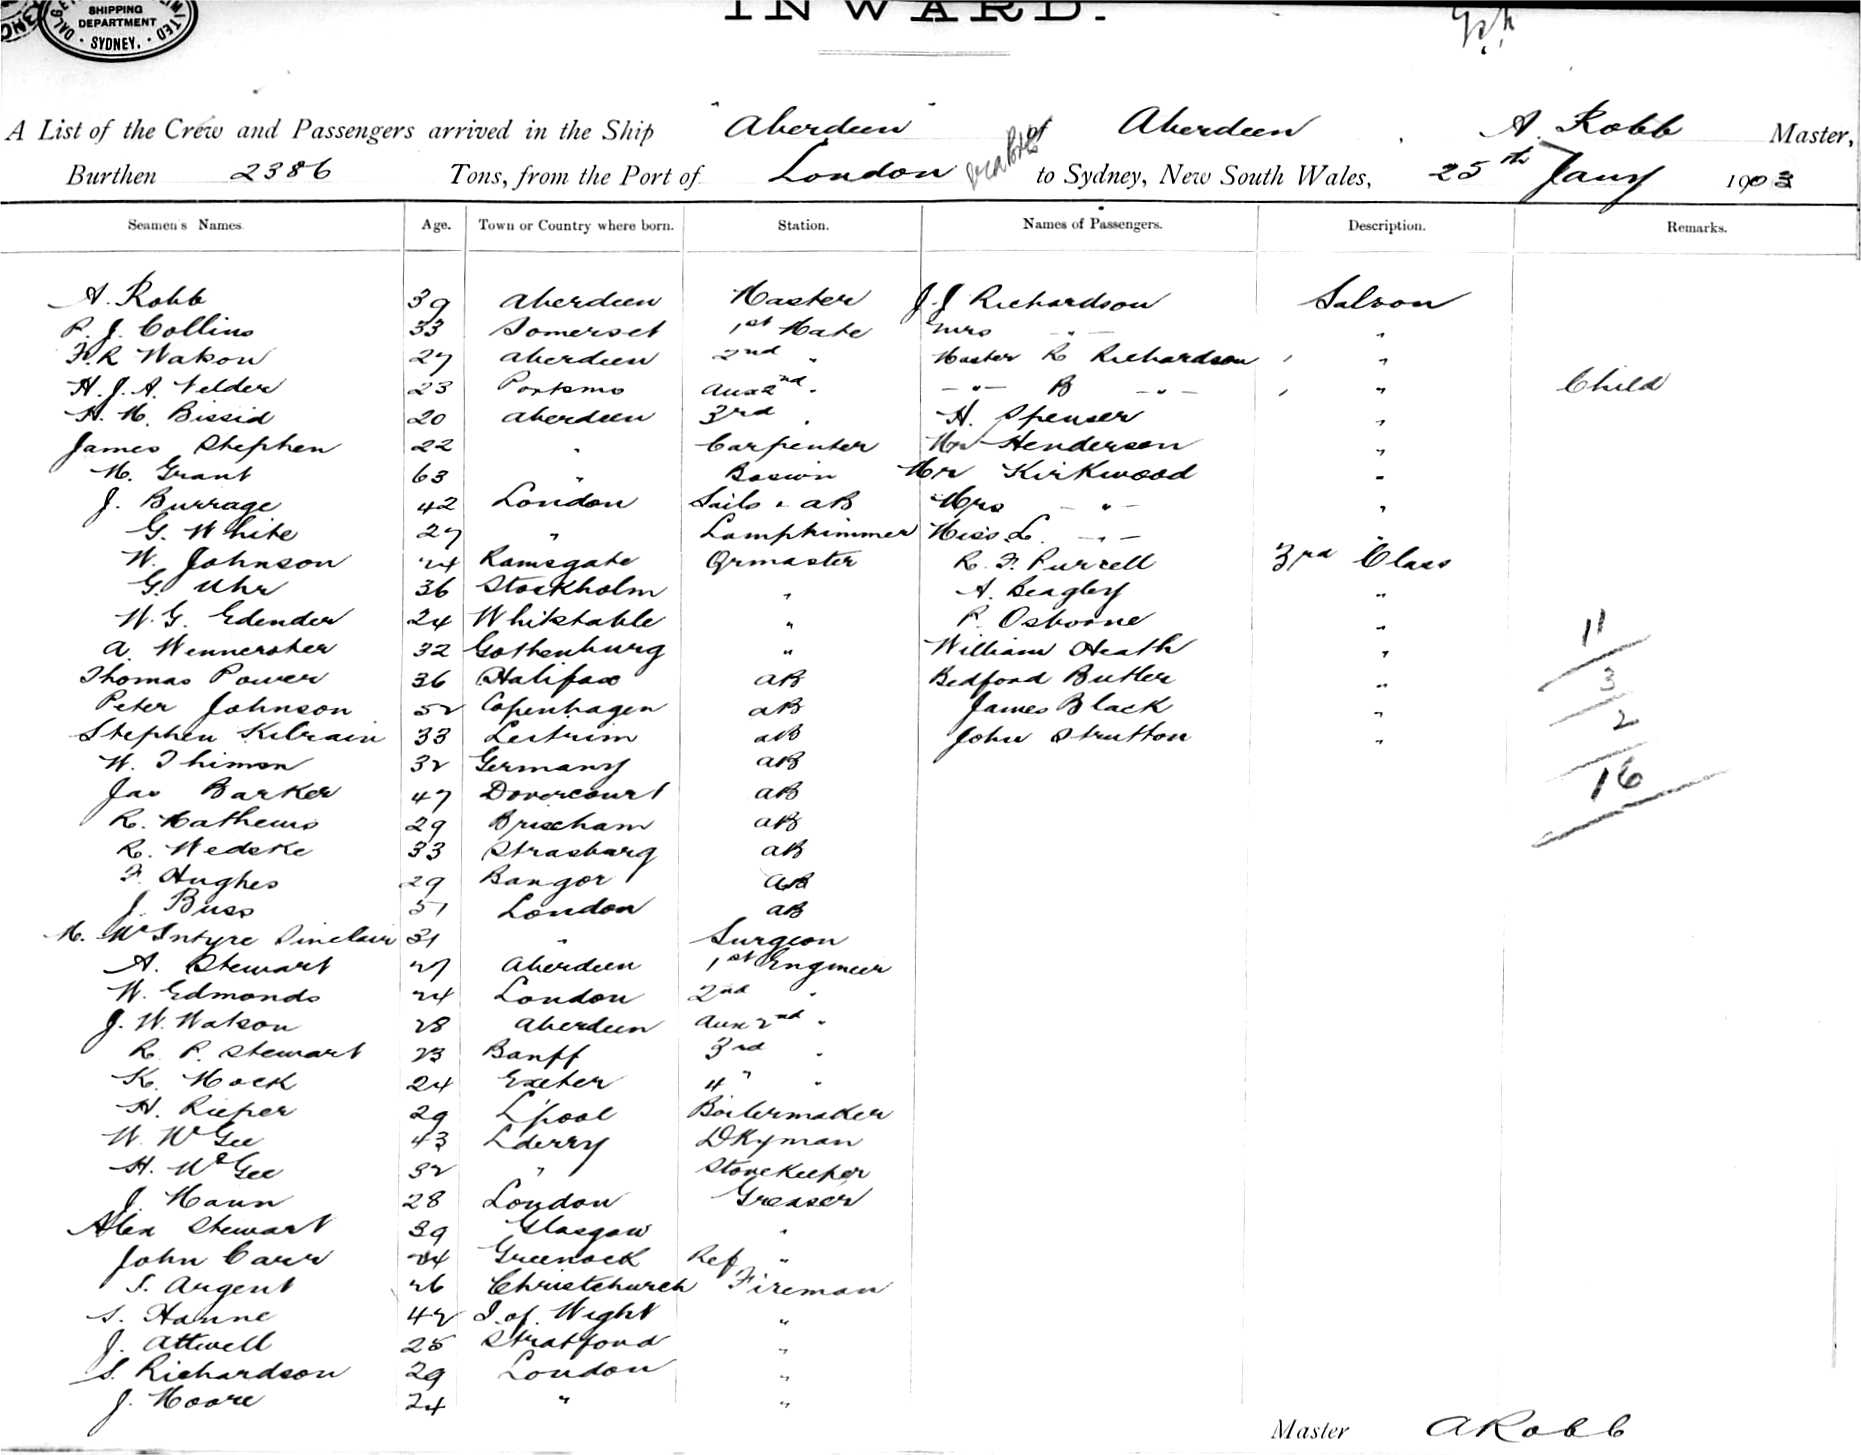 SHIPPING
DEPARTMENT
SYDNEY.
INWARD.
A List of the Crew and Passengers arrived in the Ship "Aberdeen" of Aberdeen, A. Robb Master,
Burthen 2386 Tons, from the Port of London to Sydney, New South Wales, 25th Jany 1903
Seamen's Names. Age. Town or Country where born. Station. Names of Passengers. Description. Remarks.
A. Robb 39 Aberdeen Master J. J Richardson Saloon
P. J. Collins 33 Somerset 1st Mate Mrs - " - "
F. R Watson 27 Aberdeen 2nd " Master R Richardson "
H. J. A. Velder 23 Portsmo Aux 2nd " - " - B - " - " Child
H. M. Bissid 20 Aberdeen 3rd " H. Spenser "
James Stephen 22 " Carpenter Mr Henderson "
M. Grant 63 " Boswin Mr Kirkwood "
J. Burrage 42 London Sails & AB Mrs - " - "
G. White 27 " Lamptrimmer Miss L. - " -
W. Johnson 24 Ramsgate Qrmaster R. F. Purcell 3rd Class
G. Uhr 36 Stockholm " A. Beagley "
W. G. Edender 24 Whitstable " P. Osborne "
A. Wennerster 32 Gothenburg " William Heath "
Thomas Power 36 Halifax AB Bedford Butler "
Peter Johnson 52 Copenhagen AB James Black "
Stephen Kilrain 33 Leitrim AB John Strutton "
W. Thimon 32 Germany AB
Jas Barker 47 Dovercourt AB
R. Mathews 29 Brixham AB
R. Wedske 33 Strasburg AB
F. Hughes 29 Bangor AB
J. Buss 51 London AB
M. McIntyre Sinclair 31 " Surgeon
A. Stewart 27 Aberdeen 1st Engineer
W. Edmonds 24 London 2nd "
J. W. Watson 28 Aberdeen Aux 2nd "
R. P. Stewart 23 Banff 3rd "
K. Mock 24 Exeter 4" "
H. Rieper 29 L'pool Boilermaker
W. McGee 43 Lderry Dkyman
H. McGee 32 " Storekeeper
J. Mann 28 London Greaser
Alex Stewart 39 Glasgow "
John Carr 24 Greenock Ref "
S. Argent 26 Christchurch Fireman
S. Hanne 42 I. of. Wight "
J. Attwell 25 Stratford "
S. Richardson 29 London "
J. Moore 24 " "
11
3
2
16
Master A Robb